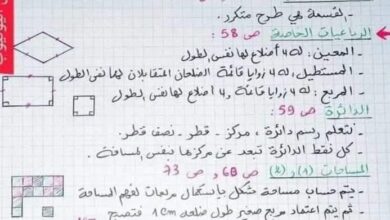 - القسمة هي طرح متكرر.
الرباعيات الخاصة ص 58:
- المعين: له 4 أضلاع لها نفس الطول
- المستطيل: له 4 زوايا قائمة الضلعان المتقابلان لهما نفس الطول
- المربع: له 4 زوايا قائمة و 4 أضلاع لها نفس الطول.
الدائرة ص 59:
- نتعلم رسم دائرة، مركز - قطر - نصف قطر.
- كل نقط الدائرة تبعد عن مركزها بنفس المسافة.
المساحات (1) و (2) ص 68 و ص 73
- يتم حساب مساحة شكل باستعمال مربعات لفهم المساحة
- ثم يتم اعتماد مربع صغير طول ضلعه 1cm فتصبح